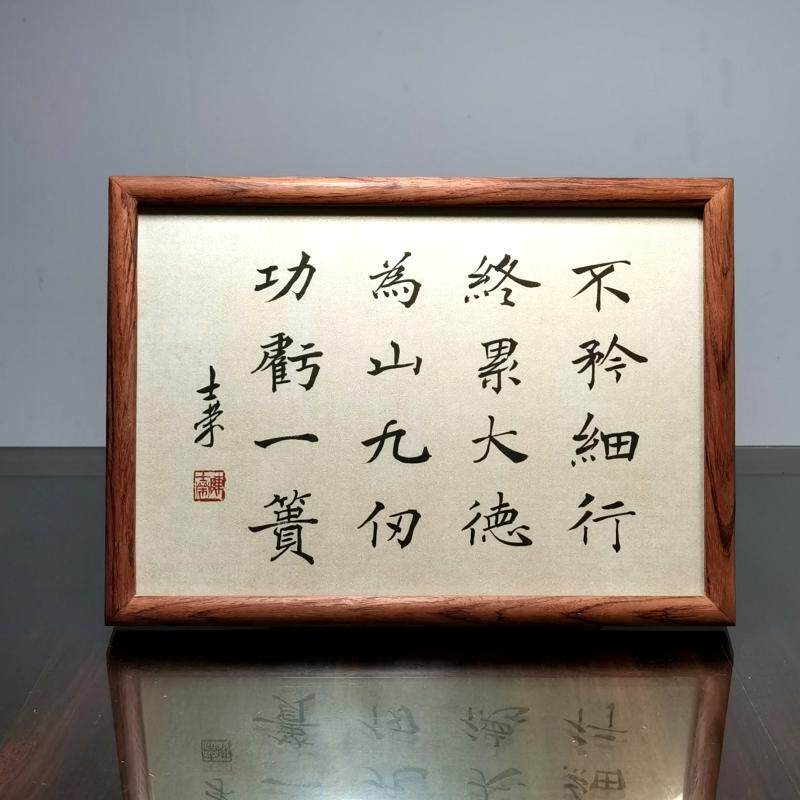 不矜細行
終累大德
為山九仞
功虧一簣
士榮